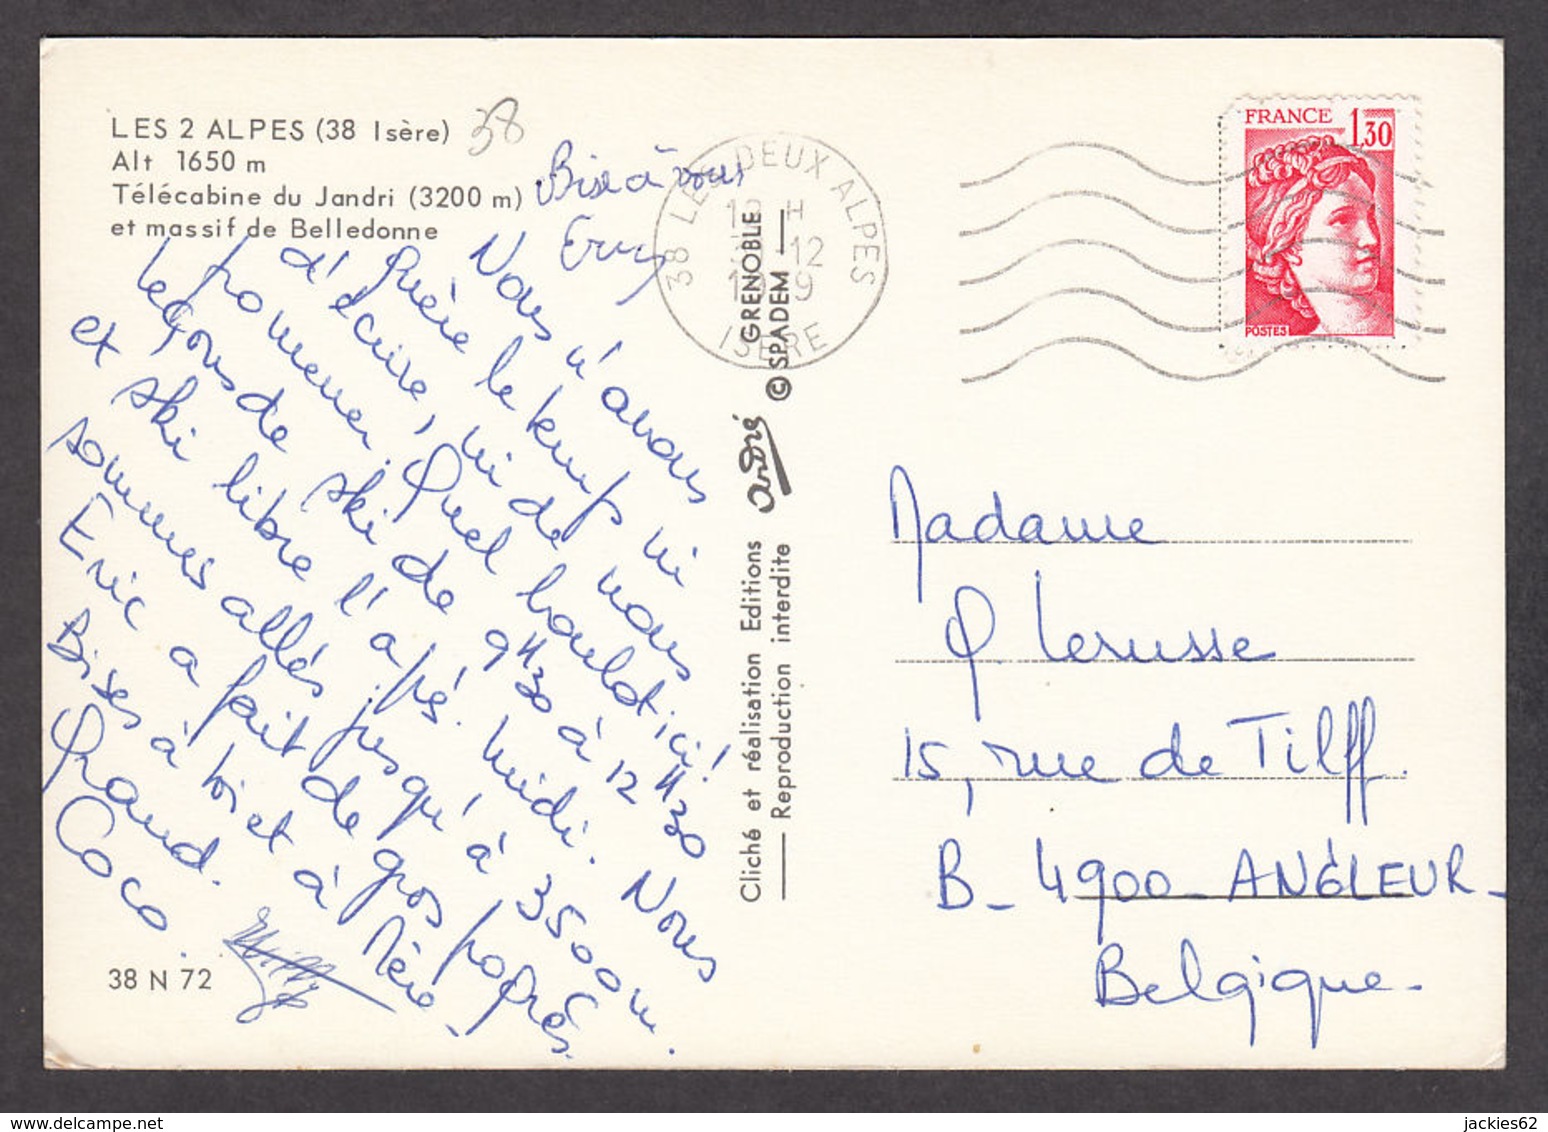 LES 2 ALPES (38 Isère)
Alt 1650 m
Télécabine du Jandri (3200 m)
et massif de Belledonne
38
Bise à vous
Nous n'avons
guère le temps ni
d'écrire, ni de nous
promener. Quel boulot ici!
Leçons de ski de 9H30 à 12H30
et ski libre l'après midi. Nous
sommes allés jusqu'à 3500 m.
Eric a fait de gros progrès.
Bises à toi et à Mère
Grand.
Coco.
Willy
38 N 72
38 LES DEUX ALPES
12
ISERE
GRENOBLE
© SPADEM
André
Cliché et réalisation Editions
Reproduction interdite
FRANCE 1,30
POSTES
Madame
Lerusse
15, rue de Tilff.
B_4900_ANGLEUR_
Belgique.
jackies62